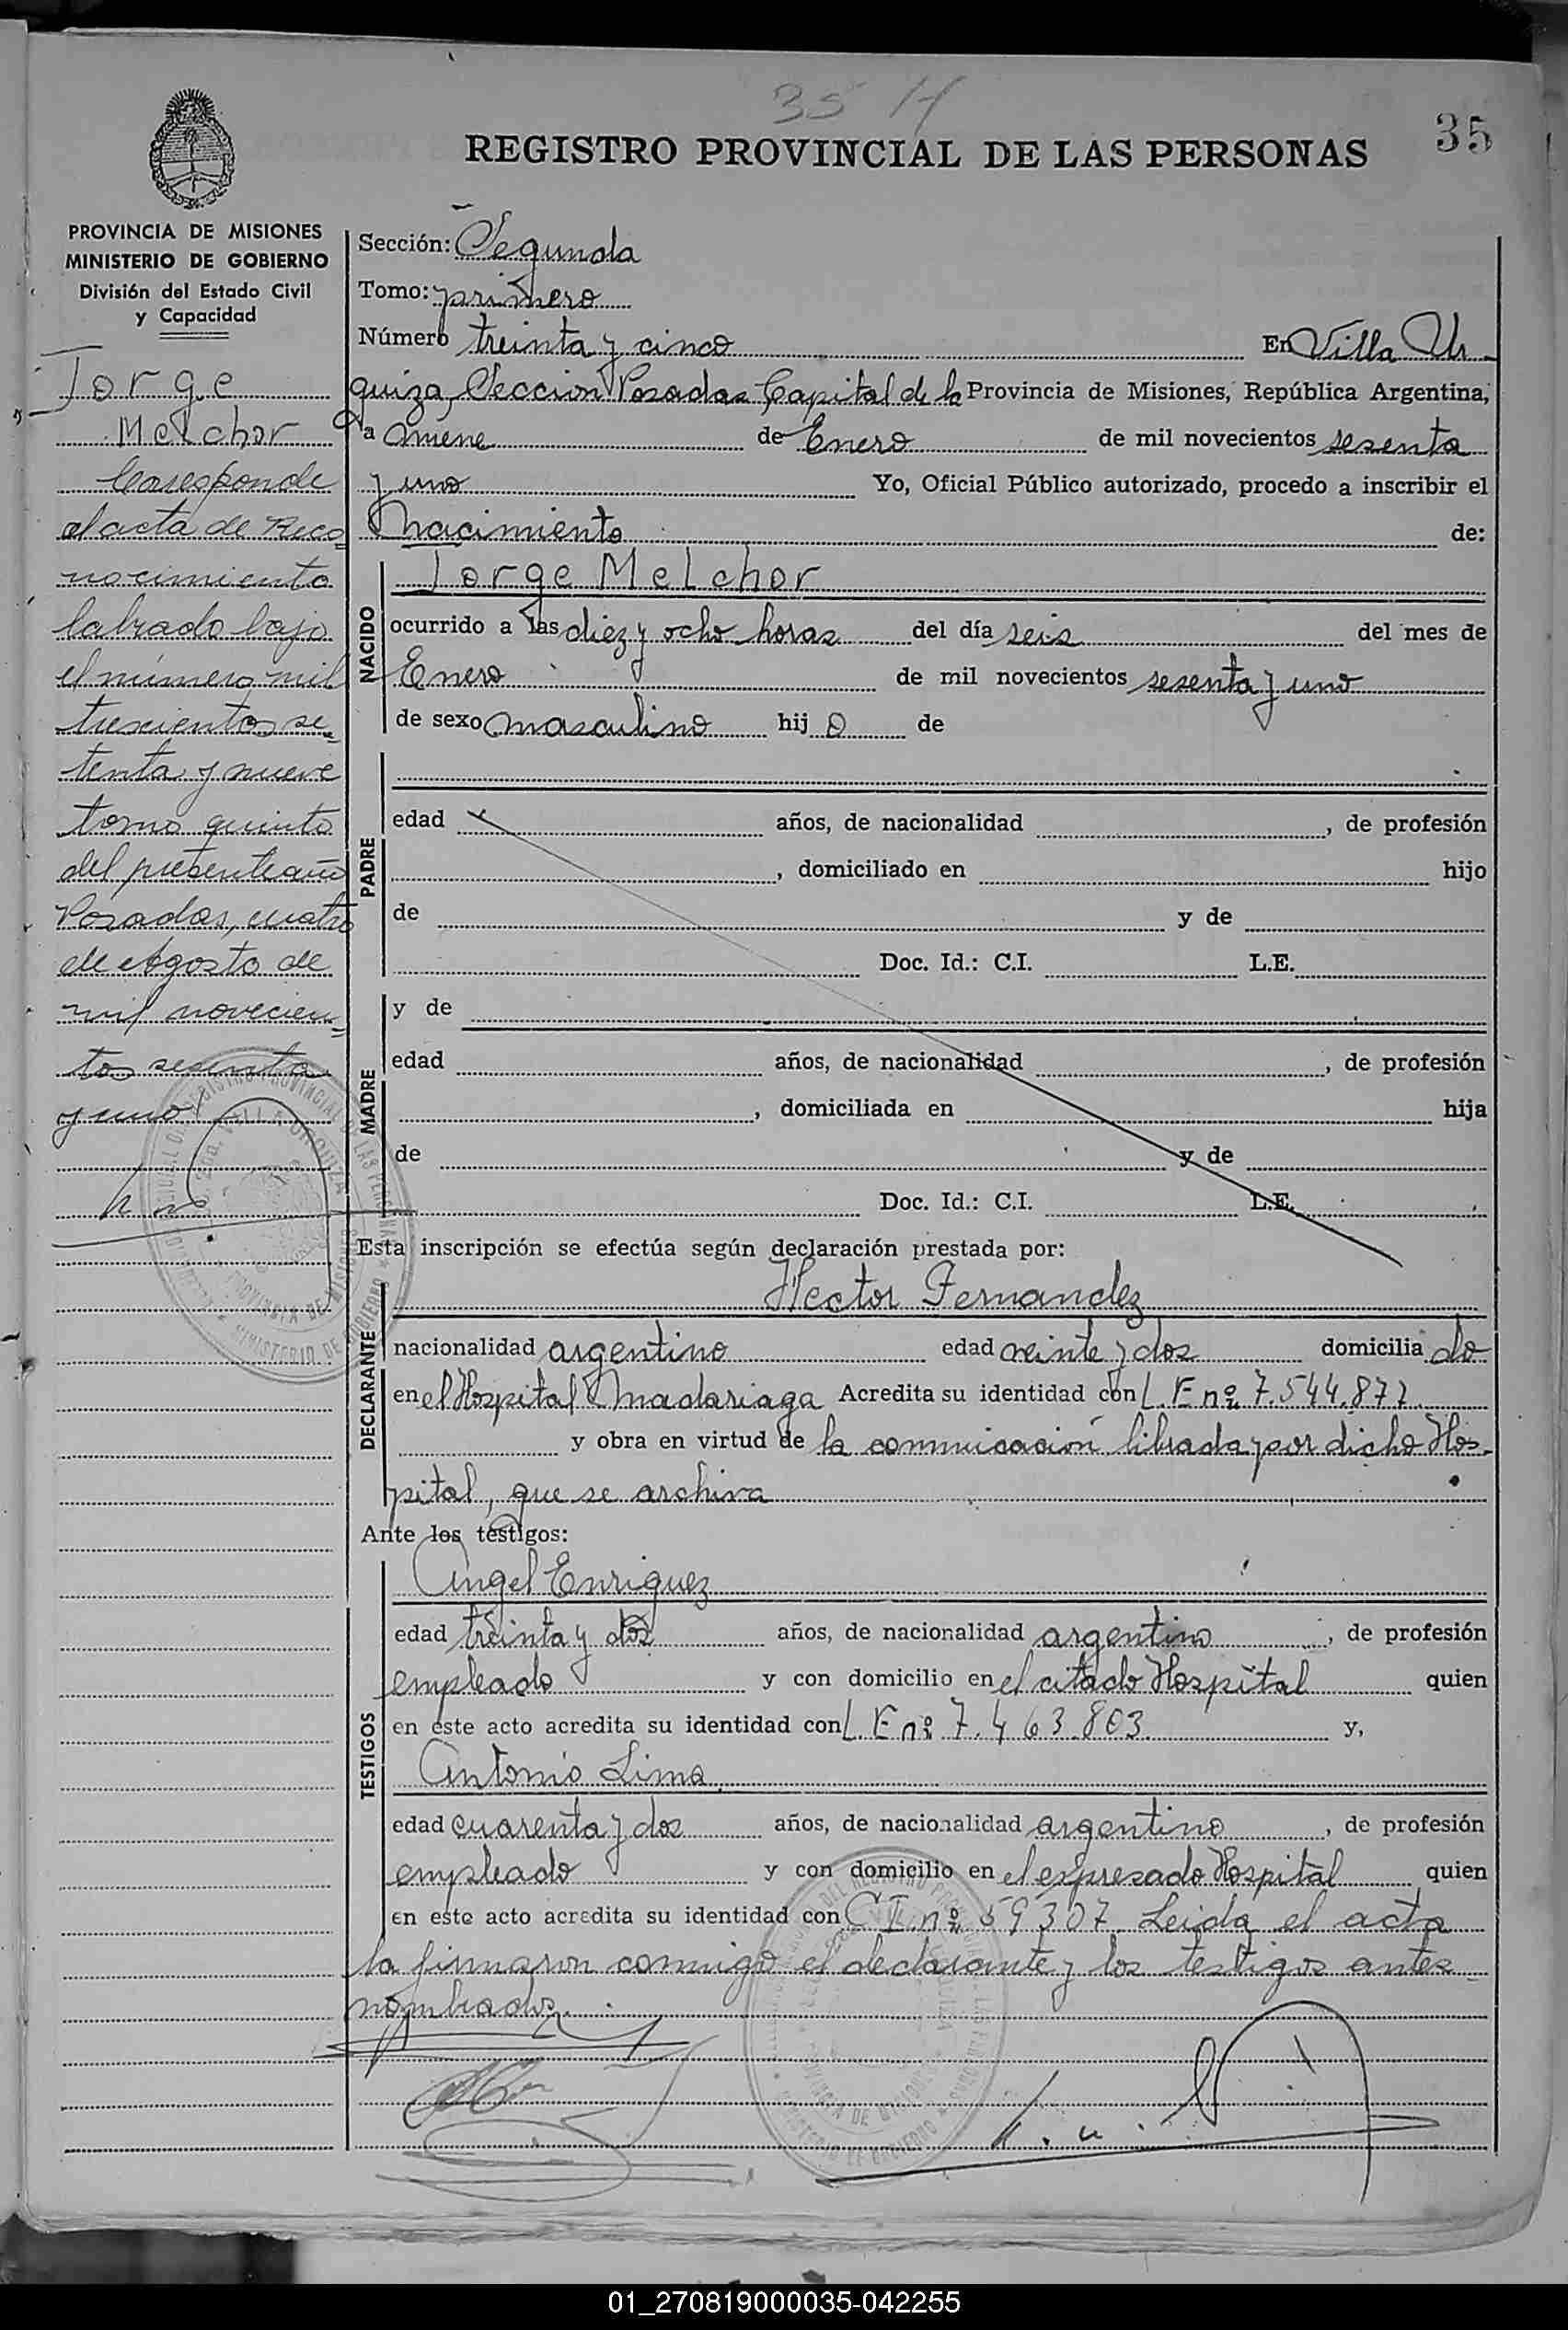 35 H
REGISTRO PROVINCIAL DE LAS PERSONAS
35
PROVINCIA DE MISIONES
MINISTERIO DE GOBIERNO
División del Estado Civil
y Capacidad
Jorge
Melchor
Corresponde
al acta de Reco=
nocimiento
labrado bajo
el número mil
trescientos se=
tenta y nueve
tomo quinto
del presente año
Posadas, cuatro
de Agosto de
mil novecien=
tos sesenta
y uno
Sección: Segunda
Tomo: primero
Número treinta y cinco En Villa Ur-
quiza, Seccion Posadas Capital de la Provincia de Misiones, República Argentina,
a nueve de Enero de mil novecientos sesenta
y uno Yo, Oficial Público autorizado, procedo a inscribir el
Nacimiento de:
NACIDO
Jorge Melchor
ocurrido a las diez y ocho horas del día seis del mes de
Enero de mil novecientos sesenta y uno
de sexo masculino hijo de
PADRE
edad años, de nacionalidad , de profesión
, domiciliado en hijo
de y de
Doc. Id.: C.I. L.E.
MADRE
y de
edad años, de nacionalidad , de profesión
, domiciliada en hija
de y de
Doc. Id.: C.I. L.E.
Esta inscripción se efectúa según declaración prestada por:
DECLARANTE
Hector Fernandez
nacionalidad argentino edad veinte y dos domiciliado
en el Hospital Madariaga Acredita su identidad con L.E nº 7.544.877
y obra en virtud de la comunicación librada por dicho Hos-
pital, que se archiva
Ante los testigos:
TESTIGOS
Angel Enriquez
edad treinta y dos años, de nacionalidad argentino, de profesión
empleado y con domicilio en el citado Hospital quien
en este acto acredita su identidad con L.E nº 7.463.803 y,
Antonio Lima
edad cuarenta y dos años, de nacionalidad argentino, de profesión
empleado y con domicilio en el expresado Hospital quien
en este acto acredita su identidad con C I. nº 59307 Leida el acta
la firmaron conmigo el declarante y los testigos antes
nombrados.
01_270819000035-042255